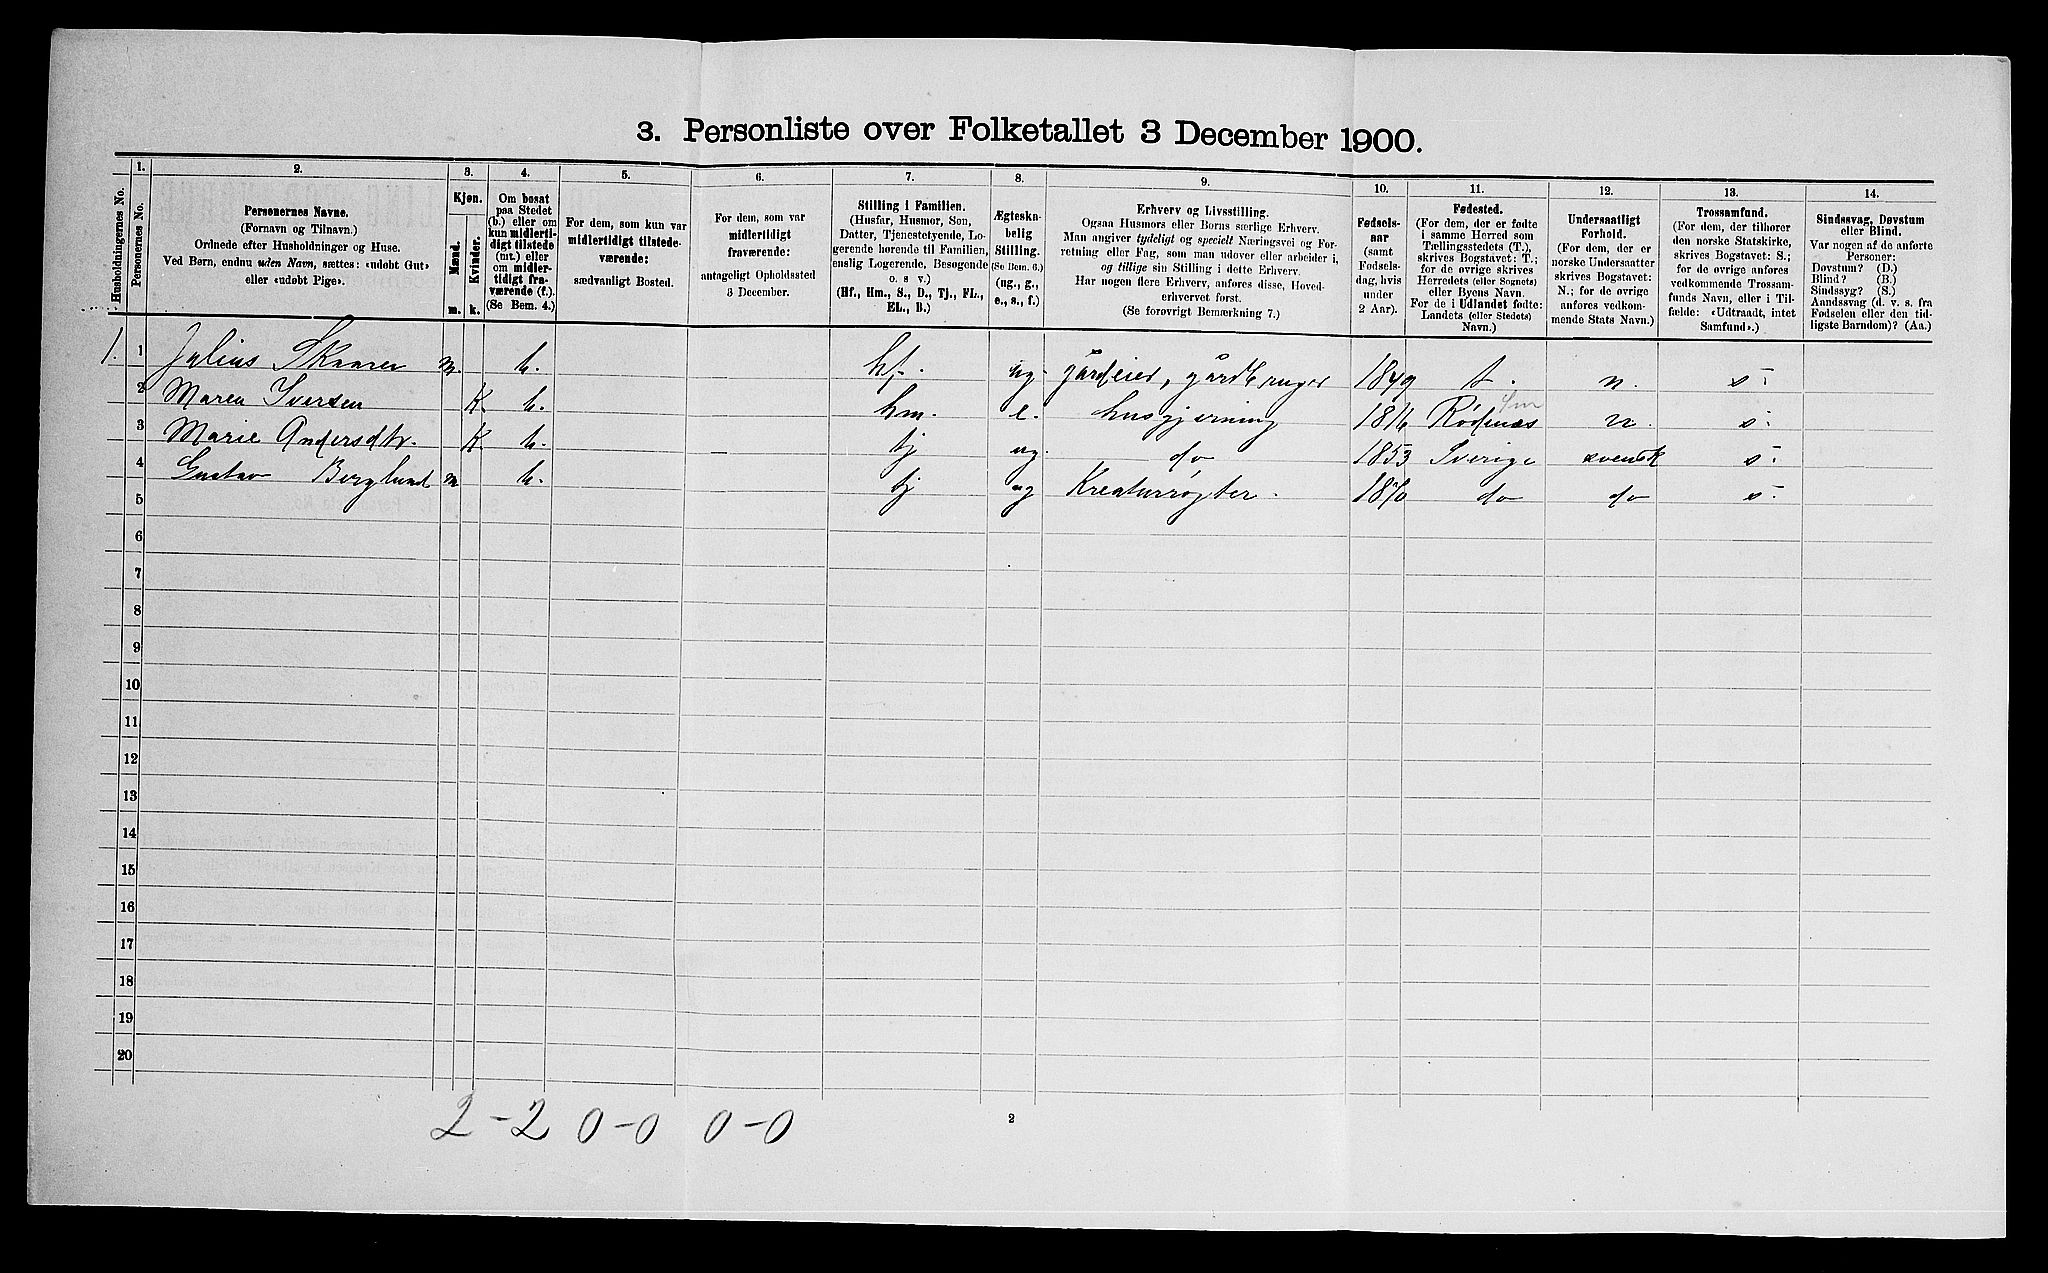 3. Personliste over Folketallet 3 December 1900.
Husholdningernes No.
1.
Personernes No.
2.
Personernes Navne.
(Fornavn og Tilnavn.)
Ordnede efter Husholdninger og Huse.
Ved Børn, endnu uden Navn, sættes: «udøbt Gut»
eller «udøbt Pige».
3.
Kjøn.
Mænd.
Kvinder.
m. k.
4.
Om bosat
paa Stedet
(b.) eller om
kun midlerti-
digt tilstede
(mt.) eller
om midler-
tidigt fra-
værende (f.).
(Se Bem. 4.)
5.
For dem, som kun var
midlertidigt tilstede-
værende:
sædvanligt Bosted.
6.
For dem, som var
midlertidigt
fraværende:
antageligt Opholdssted
3 December.
7.
Stilling i Familien.
(Husfar, Husmor, Søn,
Datter, Tjenestetyende, Lo-
gerende hørende til Familien,
enslig Logerende, Besøgende
o. s v.)
(Hf., Hm., S., D., Tj., FL.,
EL., B.)
8.
Ægteska-
belig
Stilling.
(Se Bem. 6.)
(ug., g.,
e., s., f.)
9.
Erhverv og Livsstilling.
Ogsaa Husmors eller Børns særlige Erhverv.
Man angiver tydeligt og specielt Næringsvei og For-
retning eller Fag, som man udøver eller arbeider i,
og tillige sin Stilling i dette Erhverv.
Har nogen flere Erhverv, anføres disse, Hoved-
erhvervet først.
(Se forøvrigt Bemærkning 7.)
10.
Fødsels-
aar
(samt
Fødsels-
dag, hvis
under
2 Aar).
11.
Fødested.
(For dem, der er fødte
i samme Herred som
Tællingsstedets (T.),
skrives Bogstavet: T.;
for de øvrige skrives
Herredets (eller Sognets)
eller Byens Navn.
For de i Udlandet fødte:
Landets (eller Stedets)
Navn.)
12.
Undersaatligt
Forhold.
(For dem, der er
norske Undersaatter
skrives Bogstavet:
N.; for de øvrige
anføres vedkom-
mende Stats Navn.)
13.
Trossamfund.
(For dem, der tilhører
den norske Statskirke,
skrives Bogstavet: S.;
for de øvrige anføres
vedkommende Trossam-
funds Navn, eller i Til-
fælde: «Udtraadt, intet
Samfund».)
14.
Sindssvag, Døvstum
eller Blind.
Var nogen af de anførte
Personer:
Døvstum? (D.)
Blind? (B.)
Sindssyg? (S.)
Aandssvag (d. v. s. fra
Fødselen eller den tid-
ligste Barndom)? (Aa.)
1. 1 Julius Skaarer m. b. hf. ug. gårdeier, gårdbruger 1849 t. n. s.
2 Maren Iversen K. b. hm. e. husgjerning 1816 Rødenæs n. s.
3 Marie Andersdtr. K. b. tj ug. do 1853 Sverige svensk s.
4 Gustav Berglund m b. tj ug Kreaturrøgter. 1870 do do s.
5
6
7
8
9
10
11
12
13
14
15
16
17
18
19
20
2 - 2 0 - 0 0 - 0
2